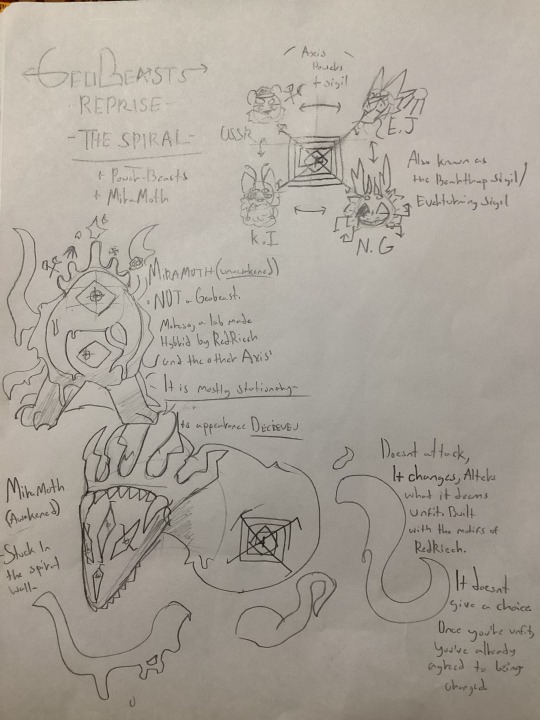 GEOBEASTS
REPRISE
- THE SPIRAL -
+ Power-Beasts
+ MiraMoth
Axis
Powers
+ sigil
USSR
E.J
K.I
N.G
Also known as
the Sigil/
Sigil
MIRAMOTH (unawakened)
NOT a Geobeast.
a lab made
Hybrid by RedRiech
and the other Axis'
- It is mostly stationary -
Its appearance DECIEVES
MiraMoth
(Awakened)
- Stuck In
the spiral
wall -
Doesnt attack,
It changes, Alters
what it deems
unfit. Built
with the motifs of
RedRiech.
It doesnt
give a choice
Once you're unfit,
You've already
agreed to being
changed